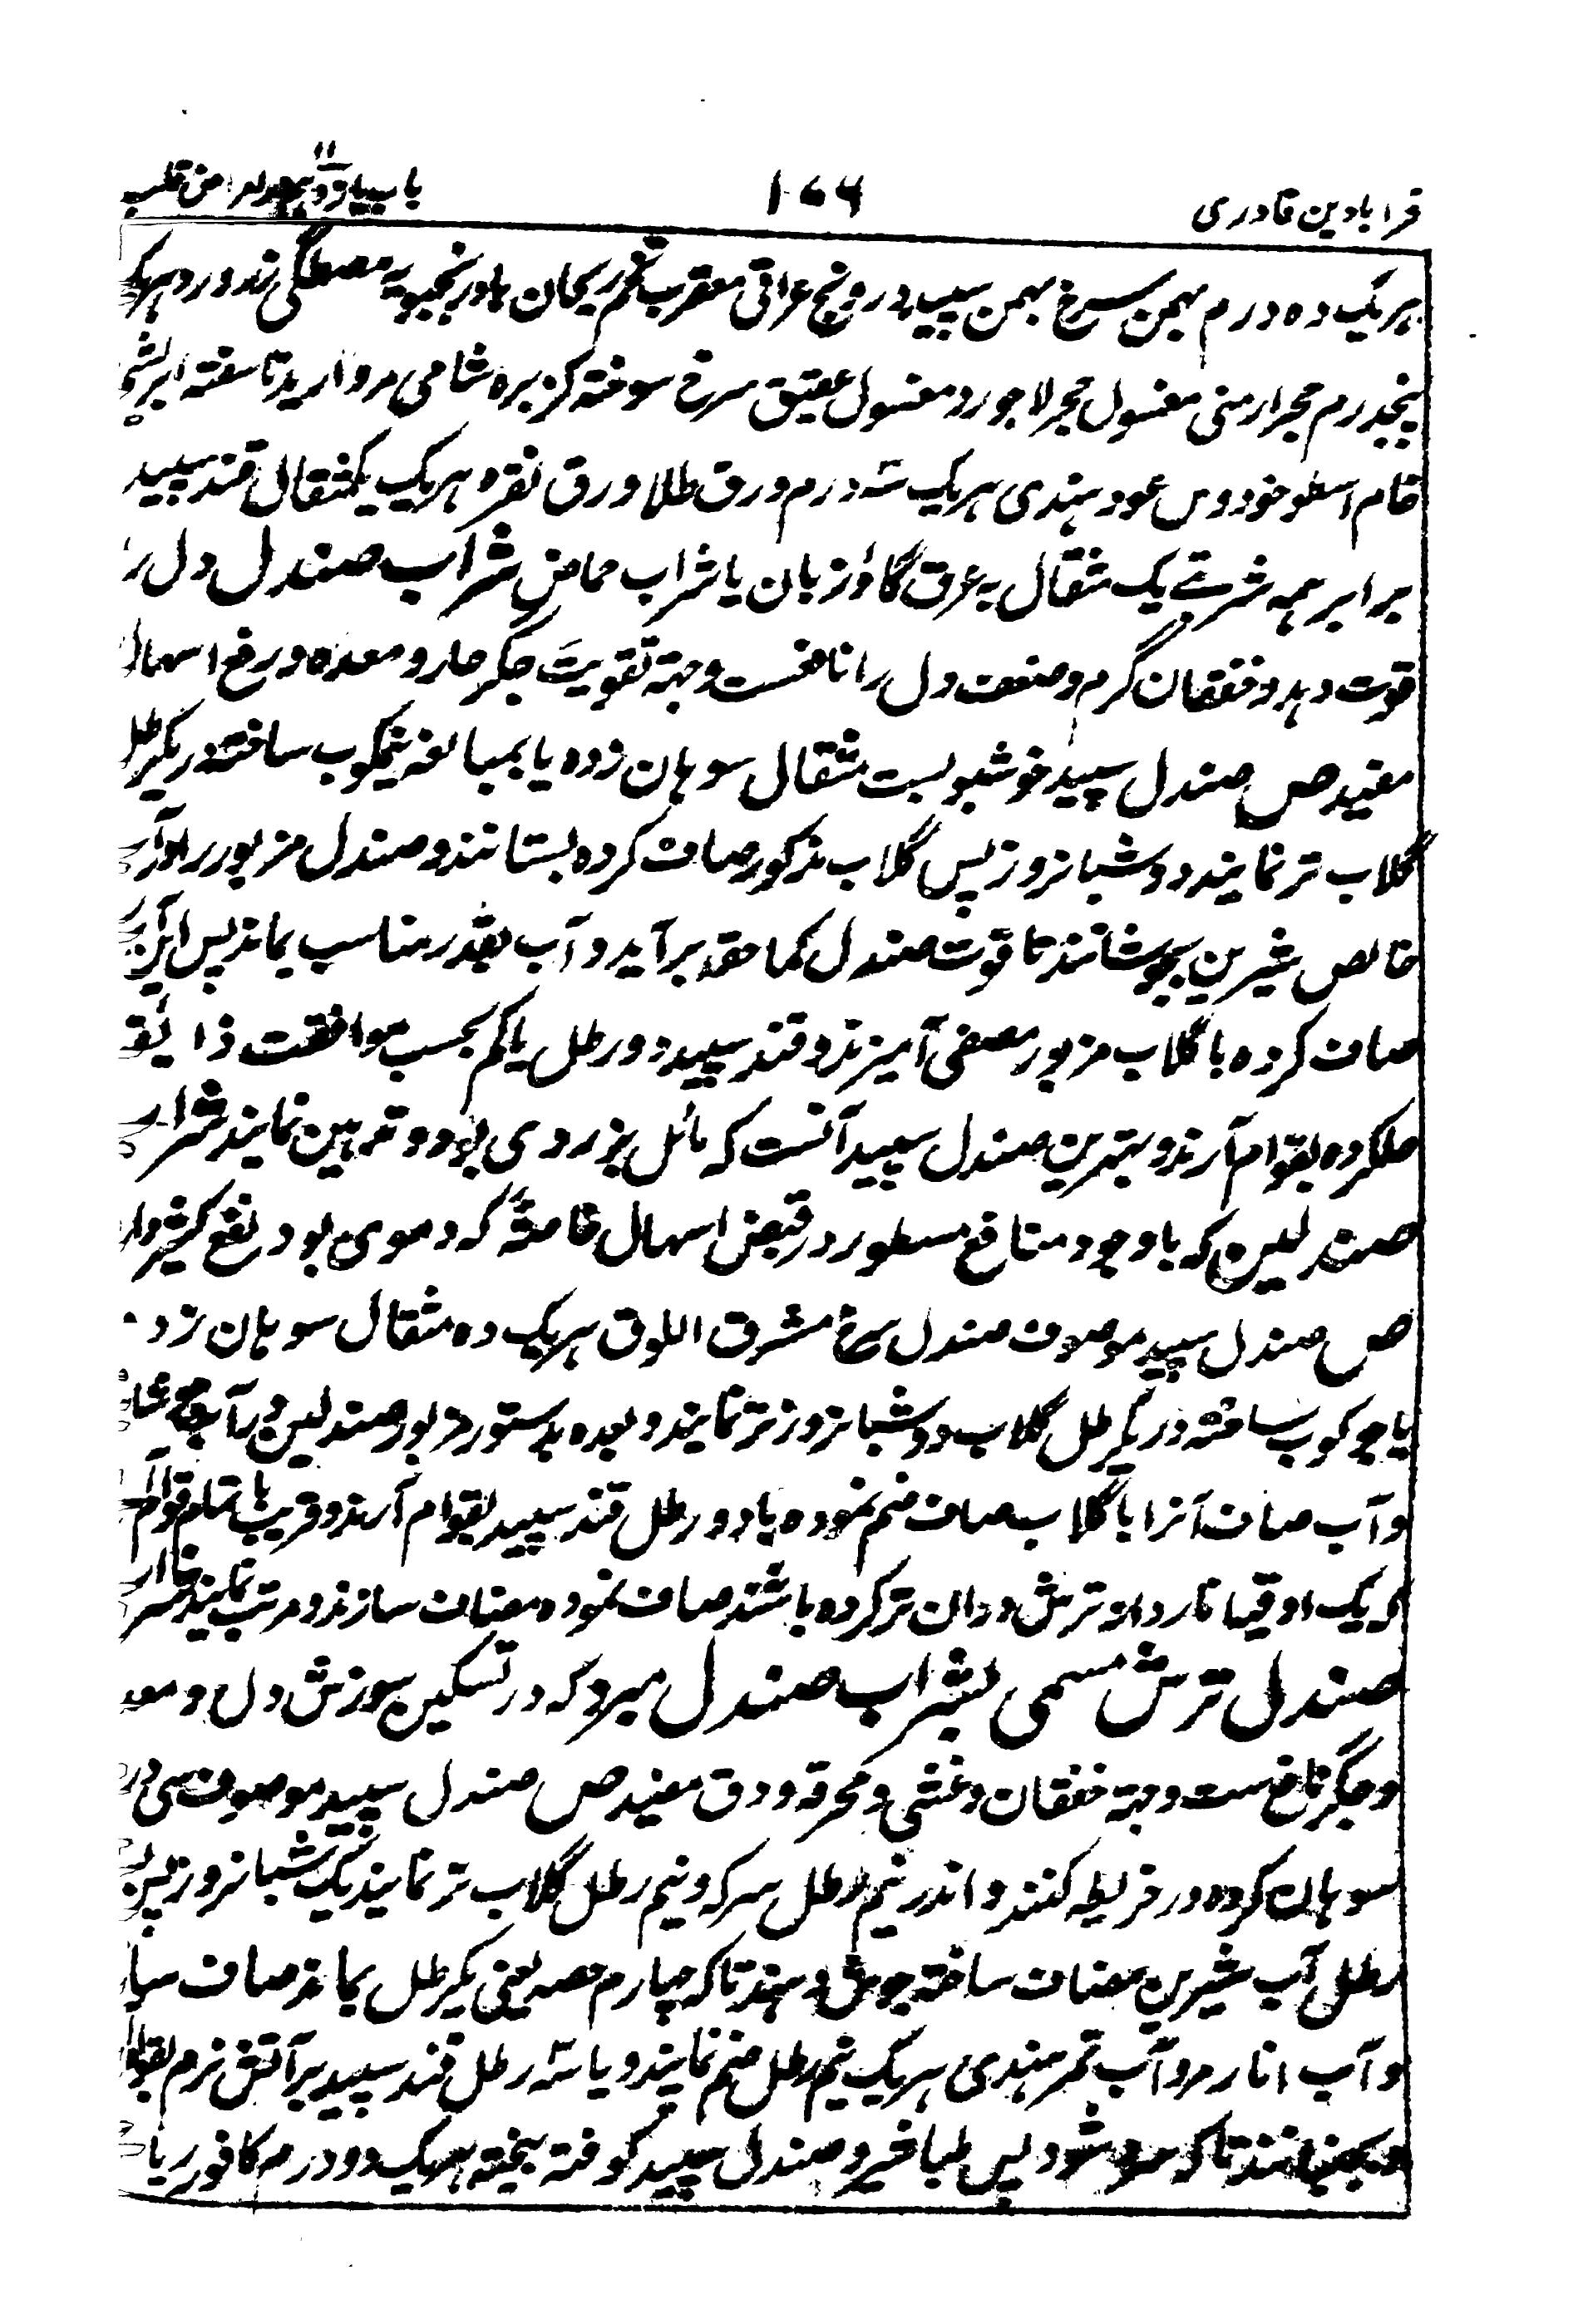 قرابادین قادری
۱۷۶
باب یازدهم در امراض قلب
هریک ده درم بهمن سرخ بهمن سپید درونج عراقی مقرب تخم ریحان بادرنجبویه مصطگی زدورد هریک
پنجدرم حجر ارمنی مغسول حجر لاجورد مغسول عقیق سرخ سوخته کزبره شامی مروارید ناسفته ابریشم
خام اسطوخودوس عود هندی هریک سه درم ورق طلا ورق نقره هریک یکمثقال قند سپید
برابر همه شربتے یک مثقال به عرق گاؤزبان یا شراب حماض شراب صندل دل را
قوت دهد و خفقان گرم و ضعف دل را نافعست و جهة تقویت جگر حار و معده و رفع اسهال
مفید ص صندل سپید خوشبو بست مثقال سوهان زده یا بمبالغه نیمکوب ساخته در یکرطل
گلاب تر نمایند دو شبانروز پس گلاب مذکور صاف کرده بستانند و صندل مزبور را در آب
خالص شیرین بجوشانند تا قوت صندل کما حقه برآید و آب بقدر مناسب بماند پس این آب
صاف کرده با گلاب مزبور مصفی آمیزند و قند سپید دو رطل یا کم بحسب موافقت ذایقه
حلکرده بقوام آرند و بهترین صندل سپید آنست که مائل بزردی بود و تدهین نمایند شراب
صندلین که باوجود منافع مسطور در قبض اسهال خاصة که دموی بود نفع کثیر دارد
ص صندل سپید موصوف صندل سرخ مشرق اللون هریک ده مثقال سوهان زده
یا جوکوب ساخته در یکرطل گلاب دو شبانروز تر نمایند و بعده بدستور مزبور صندلین در آب
و آب صاف آنرا با گلاب صاف ضم نموده با دو رطل قند سپید بقوام آرند و قریب باتمام قوام
که یک اوقیا ناردانه ترش در ان تر کرده باشند صاف نموده مضاف سازند و مرتب نمایند شراب
صندل ترش مسمی بشراب صندل مبرد که در تسکین سوزش دل و معده
و جگر نافع ست و جهة خفقان و غشی و محرقه و دق مفید ص صندل سپید موصوف سی درم
سوهان کرده در خریطه کنند و اندر نیم رطل سرکه و نیم رطل گلاب تر نمایند یک شبانروز پس
رطل آب شیرین مضاف ساخته جوش دهند تا که چهارم حصه یعنی یکرطل بماند صاف سازند
و آب انار مز و آب تمر هندی هریک نیم رطل ضم نمایند و با سه رطل قند سپید بر آتش نرم بقوام
و بجنبانند تا که سرد شود پس طباشیر و صندل سپید کوفته بیخته هریک دو درم کافور ریاحی